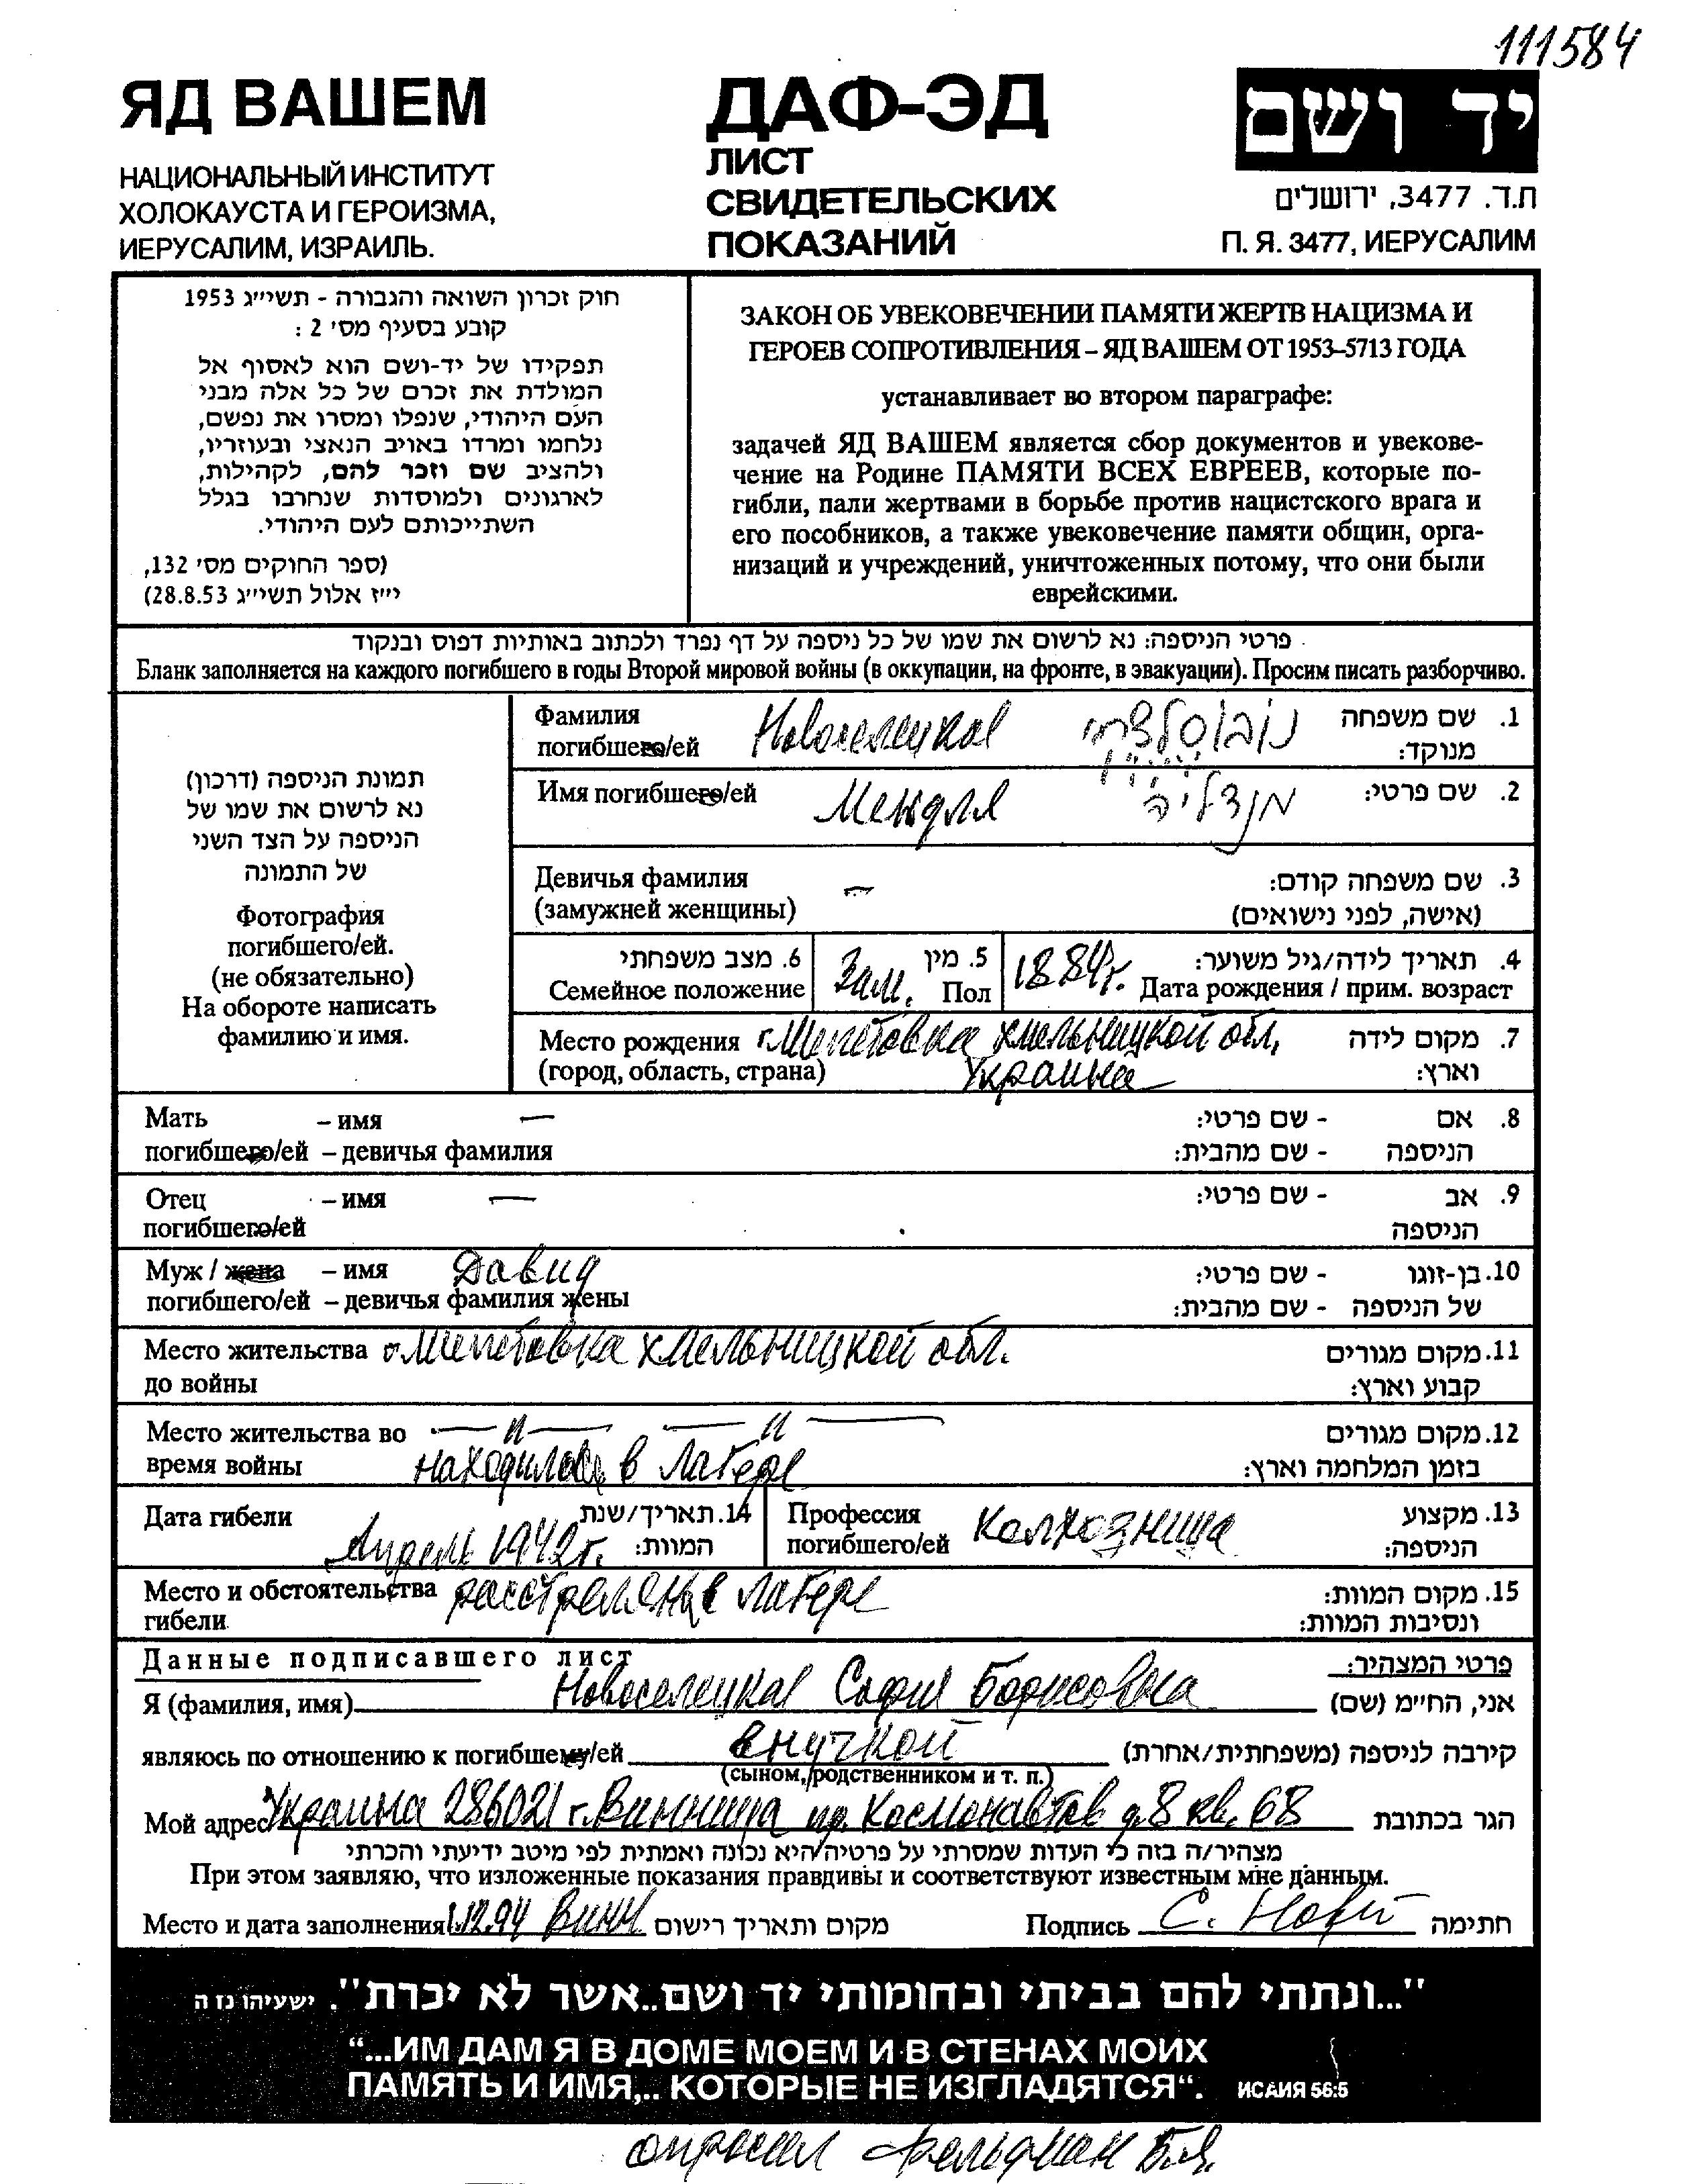 111584
ЯД ВАШЕМ
НАЦИОНАЛЬНЫЙ ИНСТИТУТ
ХОЛОКАУСТА И ГЕРОИЗМА,
ИЕРУСАЛИМ, ИЗРАИЛЬ.
ДАФ-ЭД
ЛИСТ
СВИДЕТЕЛЬСКИХ
ПОКАЗАНИЙ
יד ושם
ת.ד. 3477, ירושלים
П. Я. 3477, ИЕРУСАЛИМ
חוק זכרון השואה והגבורה - תשי״ג 1953
קובע בסעיף מס׳ 2 :
תפקידו של יד-ושם הוא לאסוף אל
המולדת את זכרם של כל אלה מבני
העם היהודי, שנפלו ומסרו את נפשם,
נלחמו ומרדו באויב הנאצי ובעוזריו,
ולהציב שם וזכר להם, לקהילות,
לארגונים ולמוסדות שנחרבו בגלל
השתייכותם לעם היהודי.
(ספר החוקים מס׳ 132,
י״ז אלול תשי״ג 28.8.53)
ЗАКОН ОБ УВЕКОВЕЧЕНИИ ПАМЯТИ ЖЕРТВ НАЦИЗМА И
ГЕРОЕВ СОПРОТИВЛЕНИЯ – ЯД ВАШЕМ ОТ 1953–5713 ГОДА
устанавливает во втором параграфе:
задачей ЯД ВАШЕМ является сбор документов и увекове-
чение на Родине ПАМЯТИ ВСЕХ ЕВРЕЕВ, которые по-
гибли, пали жертвами в борьбе против нацистского врага и
его пособников, а также увековечение памяти общин, орга-
низаций и учреждений, уничтоженных потому, что они были
еврейскими.
פרטי הניספה: נא לרשום את שמו של כל ניספה על דף נפרד ולכתוב באותיות דפוס ובנקוד
Бланк заполняется на каждого погибшего в годы Второй мировой войны (в оккупации, на фронте, в эвакуации). Просим писать разборчиво.
תמונת הניספה (דרכון)
נא לרשום את שמו של
הניספה על הצד השני
של התמונה
Фотография
погибшего/ей.
(не обязательно)
На обороте написать
фамилию и имя.
Фамилия Новоселецкая נובוסלצקי 1. שם משפחה
погибшего/ей מנוקד:
Имя погибшего/ей Мендля מנדליה 2. שם פרטי:
Девичья фамилия — 3. שם משפחה קודם:
(замужней женщины) (אישה, לפני נישואים)
6. מצב משפחתי Зам. 5. מין 1884г. 4. תאריך לידה/גיל משוער:
Семейное положение Пол Дата рождения / прим. возраст
Место рождения г. Шепетовка Хмельницкой обл. 7. מקום לידה
(город, область, страна) Украина וארץ:
Мать – имя — 8. אם - שם פרטי:
погибшего/ей – девичья фамилия הניספה - שם מהבית:
Отец – имя — 9. אב - שם פרטי:
погибшего/ей הניספה
Муж / жена – имя Давид 10. בן-זוגו - שם פרטי:
погибшего/ей – девичья фамилия жены של הניספה - שם מהבית:
Место жительства г. Шепетовка Хмельницкой обл. 11. מקום מגורים
до войны קבוע וארץ:
Место жительства во —"— —"— 12. מקום מגורים
время войны находилась в лагере בזמן המלחמה וארץ:
Дата гибели Апрель 1942г. 14. תאריך/שנת המוות:
Профессия Колхозница 13. מקצוע
погибшего/ей הניספה:
Место и обстоятельства расстреляна в лагере 15. מקום המוות:
гибели ונסיבות המוות:
Данные подписавшего лист פרטי המצהיר:
Я (фамилия, имя) Новоселецкая София Борисовна אני, החי״מ (שם)
являюсь по отношению к погибшему/ей внучкой קירבה לניספה (משפחתית/אחרת)
(сыном, родственником и т. п.)
Мой адрес Украина 286021 г. Винница пр. Космонавтов д.8 кв. 68 הגר בכתובת
מצהיר/ה בזה כי העדות שמסרתי על פרטיה/היא נכונה ואמתית לפי מיטב ידיעתי והכרתי
При этом заявляю, что изложенные показания правдивы и соответствуют известным мне данным.
Место и дата заполнения 1.12.94 Винн מקום ותאריך רישום Подпись С. Новй חתימה
"...ונתתי להם בביתי ובחומותי יד ושם..אשר לא יכרת". ישעיהו נז ה
“...ИМ ДАМ Я В ДОМЕ МОЕМ И В СТЕНАХ МОИХ
ПАМЯТЬ И ИМЯ,.. КОТОРЫЕ НЕ ИЗГЛАДЯТСЯ“. ИСАИЯ 56:5
опросил Фельдман Б.Я.